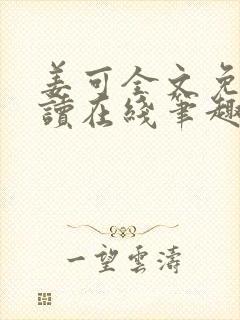 姜可全文免
讀在綫筆趣
一望雲濤